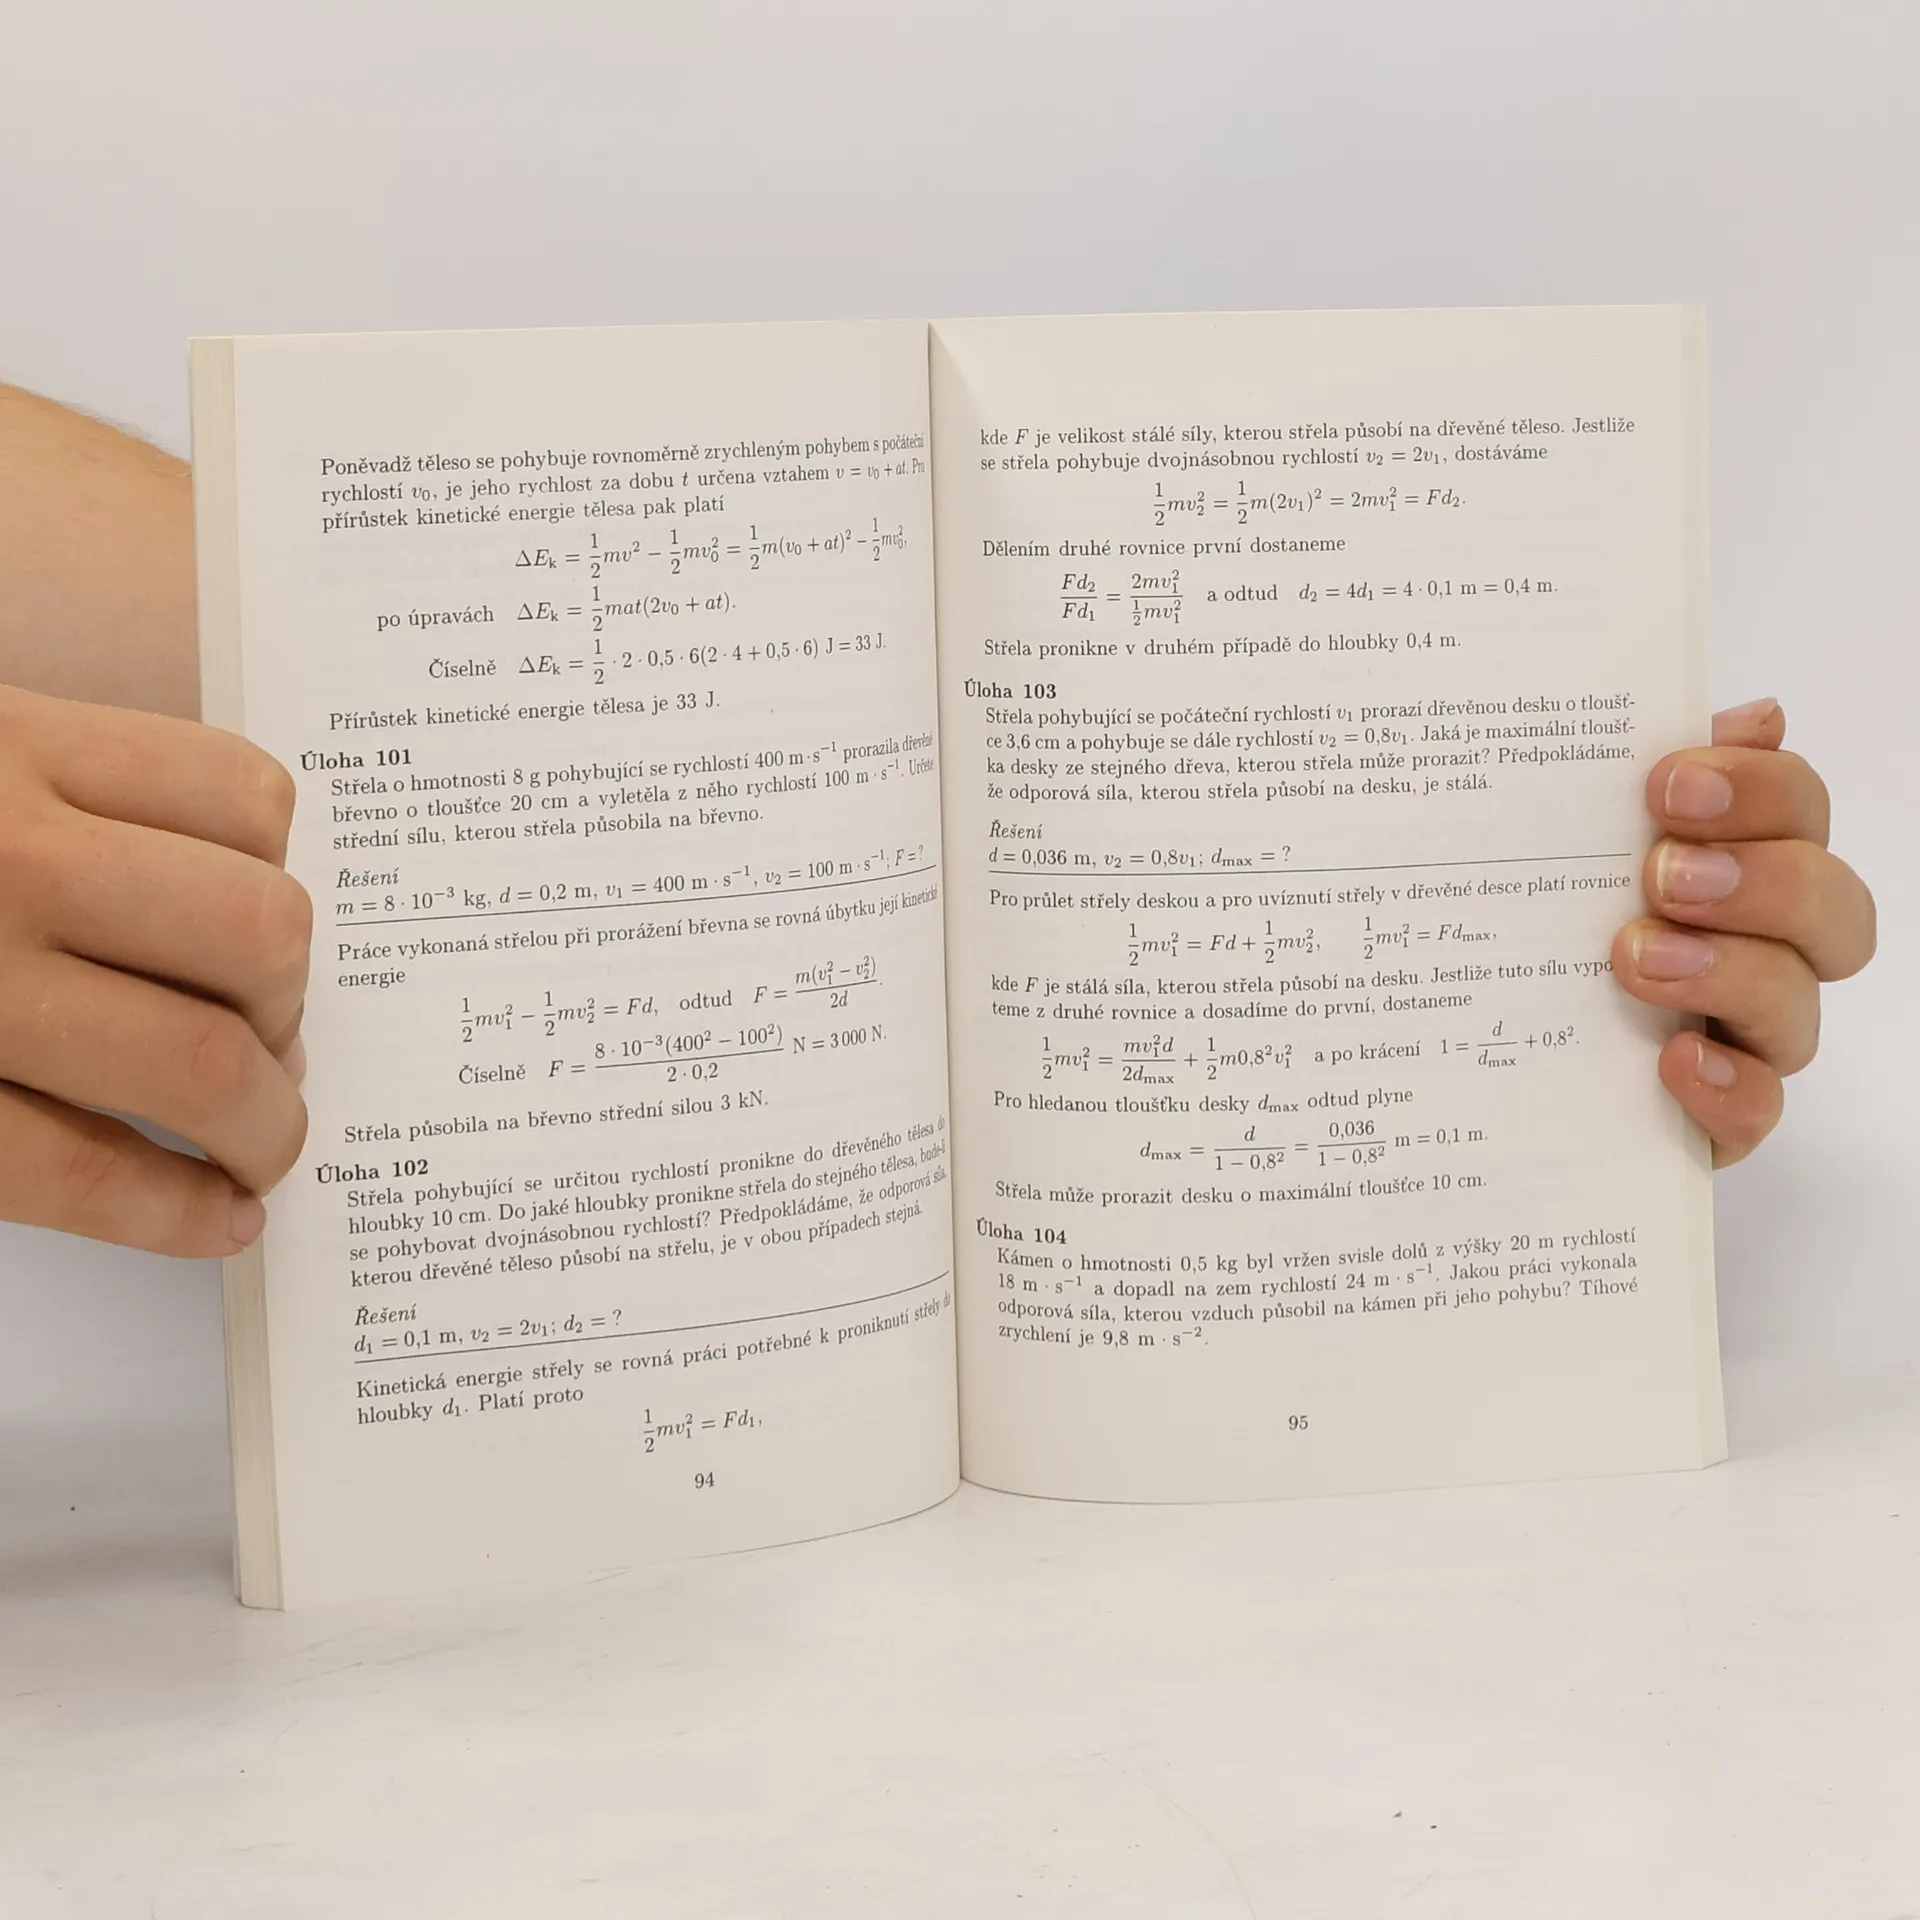 Poněvadž těleso se pohybuje rovnoměrně zrychleným pohybem s počáteční
rychlostí v₀, je jeho rychlost za dobu t určena vztahem v = v₀ + at. Pro
přírůstek kinetické energie tělesa pak platí
ΔEₖ = 1/2 mv² − 1/2 mv₀² = 1/2 m(v₀ + at)² − 1/2 mv₀²,
po úpravách ΔEₖ = 1/2 mat(2v₀ + at).
Číselně ΔEₖ = 1/2 · 2 · 0,5 · 6(2 · 4 + 0,5 · 6) J = 33 J.
Přírůstek kinetické energie tělesa je 33 J.
Úloha 101
Střela o hmotnosti 8 g pohybující se rychlostí 400 m·s⁻¹ prorazila dřevěné
břevno o tloušťce 20 cm a vyletěla z něho rychlostí 100 m · s⁻¹. Určete
střední sílu, kterou střela působila na břevno.
Řešení
m = 8 · 10⁻³ kg, d = 0,2 m, v₁ = 400 m · s⁻¹, v₂ = 100 m · s⁻¹; F = ?
Práce vykonaná střelou při prorážení břevna se rovná úbytku její kinetické
energie
1/2 mv₁² − 1/2 mv₂² = Fd, odtud F = m(v₁² − v₂²)/2d.
Číselně F = 8 · 10⁻³(400² − 100²)/2 · 0,2 N = 3 000 N.
Střela působila na břevno střední silou 3 kN.
Úloha 102
Střela pohybující se určitou rychlostí pronikne do dřevěného tělesa do
hloubky 10 cm. Do jaké hloubky pronikne střela do stejného tělesa, bude-li
se pohybovat dvojnásobnou rychlostí? Předpokládáme, že odporová síla,
kterou dřevěné těleso působí na střelu, je v obou případech stejná.
Řešení
d₁ = 0,1 m, v₂ = 2v₁; d₂ = ?
Kinetická energie střely se rovná práci potřebné k proniknutí střely do
hloubky d₁. Platí proto
1/2 mv₁² = Fd₁,
94
kde F je velikost stálé síly, kterou střela působí na dřevěné těleso. Jestliže
se střela pohybuje dvojnásobnou rychlostí v₂ = 2v₁, dostáváme
1/2 mv₂² = 1/2 m(2v₁)² = 2mv₁² = Fd₂.
Dělením druhé rovnice první dostaneme
Fd₂/Fd₁ = 2mv₁²/(1/2 mv₁²) a odtud d₂ = 4d₁ = 4 · 0,1 m = 0,4 m.
Střela pronikne v druhém případě do hloubky 0,4 m.
Úloha 103
Střela pohybující se počáteční rychlostí v₁ prorazí dřevěnou desku o tloušť-
ce 3,6 cm a pohybuje se dále rychlostí v₂ = 0,8v₁. Jaká je maximální tloušť-
ka desky ze stejného dřeva, kterou střela může prorazit? Předpokládáme,
že odporová síla, kterou střela působí na desku, je stálá.
Řešení
d = 0,036 m, v₂ = 0,8v₁; dmax = ?
Pro průlet střely deskou a pro uvíznutí střely v dřevěné desce platí rovnice
1/2 mv₁² = Fd + 1/2 mv₂², 1/2 mv₁² = Fdmax,
kde F je stálá síla, kterou střela působí na desku. Jestliže tuto sílu vypo
teme z druhé rovnice a dosadíme do první, dostaneme
1/2 mv₁² = mv₁²d/2dmax + 1/2 m0,8²v₁² a po krácení 1 = d/dmax + 0,8².
Pro hledanou tloušťku desky dmax odtud plyne
dmax = d/(1 − 0,8²) = 0,036/(1 − 0,8²) m = 0,1 m.
Střela může prorazit desku o maximální tloušťce 10 cm.
Úloha 104
Kámen o hmotnosti 0,5 kg byl vržen svisle dolů z výšky 20 m rychlostí
18 m · s⁻¹ a dopadl na zem rychlostí 24 m · s⁻¹. Jakou práci vykonala
odporová síla, kterou vzduch působil na kámen při jeho pohybu? Tíhové
zrychlení je 9,8 m · s⁻².
95